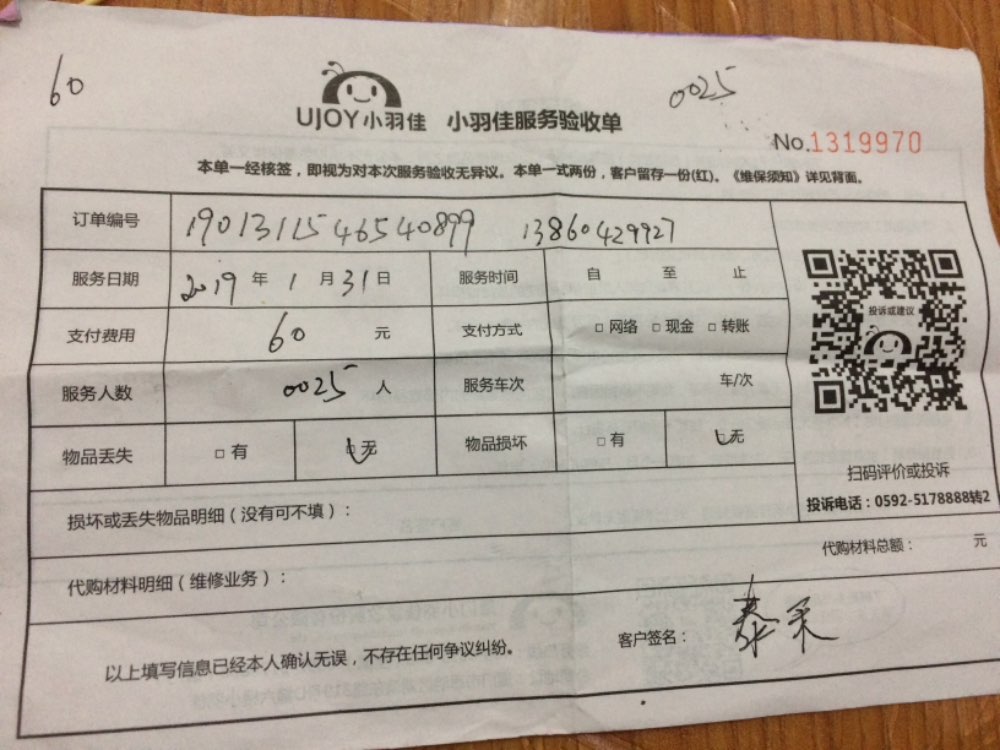 60
0025
UJOY小羽佳 小羽佳服务验收单
No.1319970
本单一经核签，即视为对本次服务验收无异议。本单一式两份，客户留存一份(红)。《维保须知》详见背面。
订单编号 1901311546540899 13860429927
服务日期 2019年1月31日 服务时间 自 至 止
支付费用 60 元 支付方式 □网络 □现金 □转账
投诉或建议
服务人数 0025 人 服务车次 车/次
物品丢失 □有 □无 物品损坏 □有 □无
扫码评价或投诉
投诉电话：0592-5178888转2
损坏或丢失物品明细（没有可不填）：
代购材料明细（维修业务）： 代购材料总额： 元
以上填写信息已经本人确认无误，不存在任何争议纠纷。 客户签名：